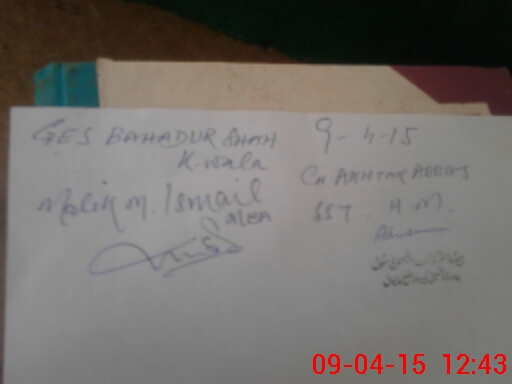 GES BAHADUR SHAH
K. wala
Malik M. Ismail
MEA
9-4-15
CH AKHTAR ABBAS
SST. H.M.
09-04-15 12:43